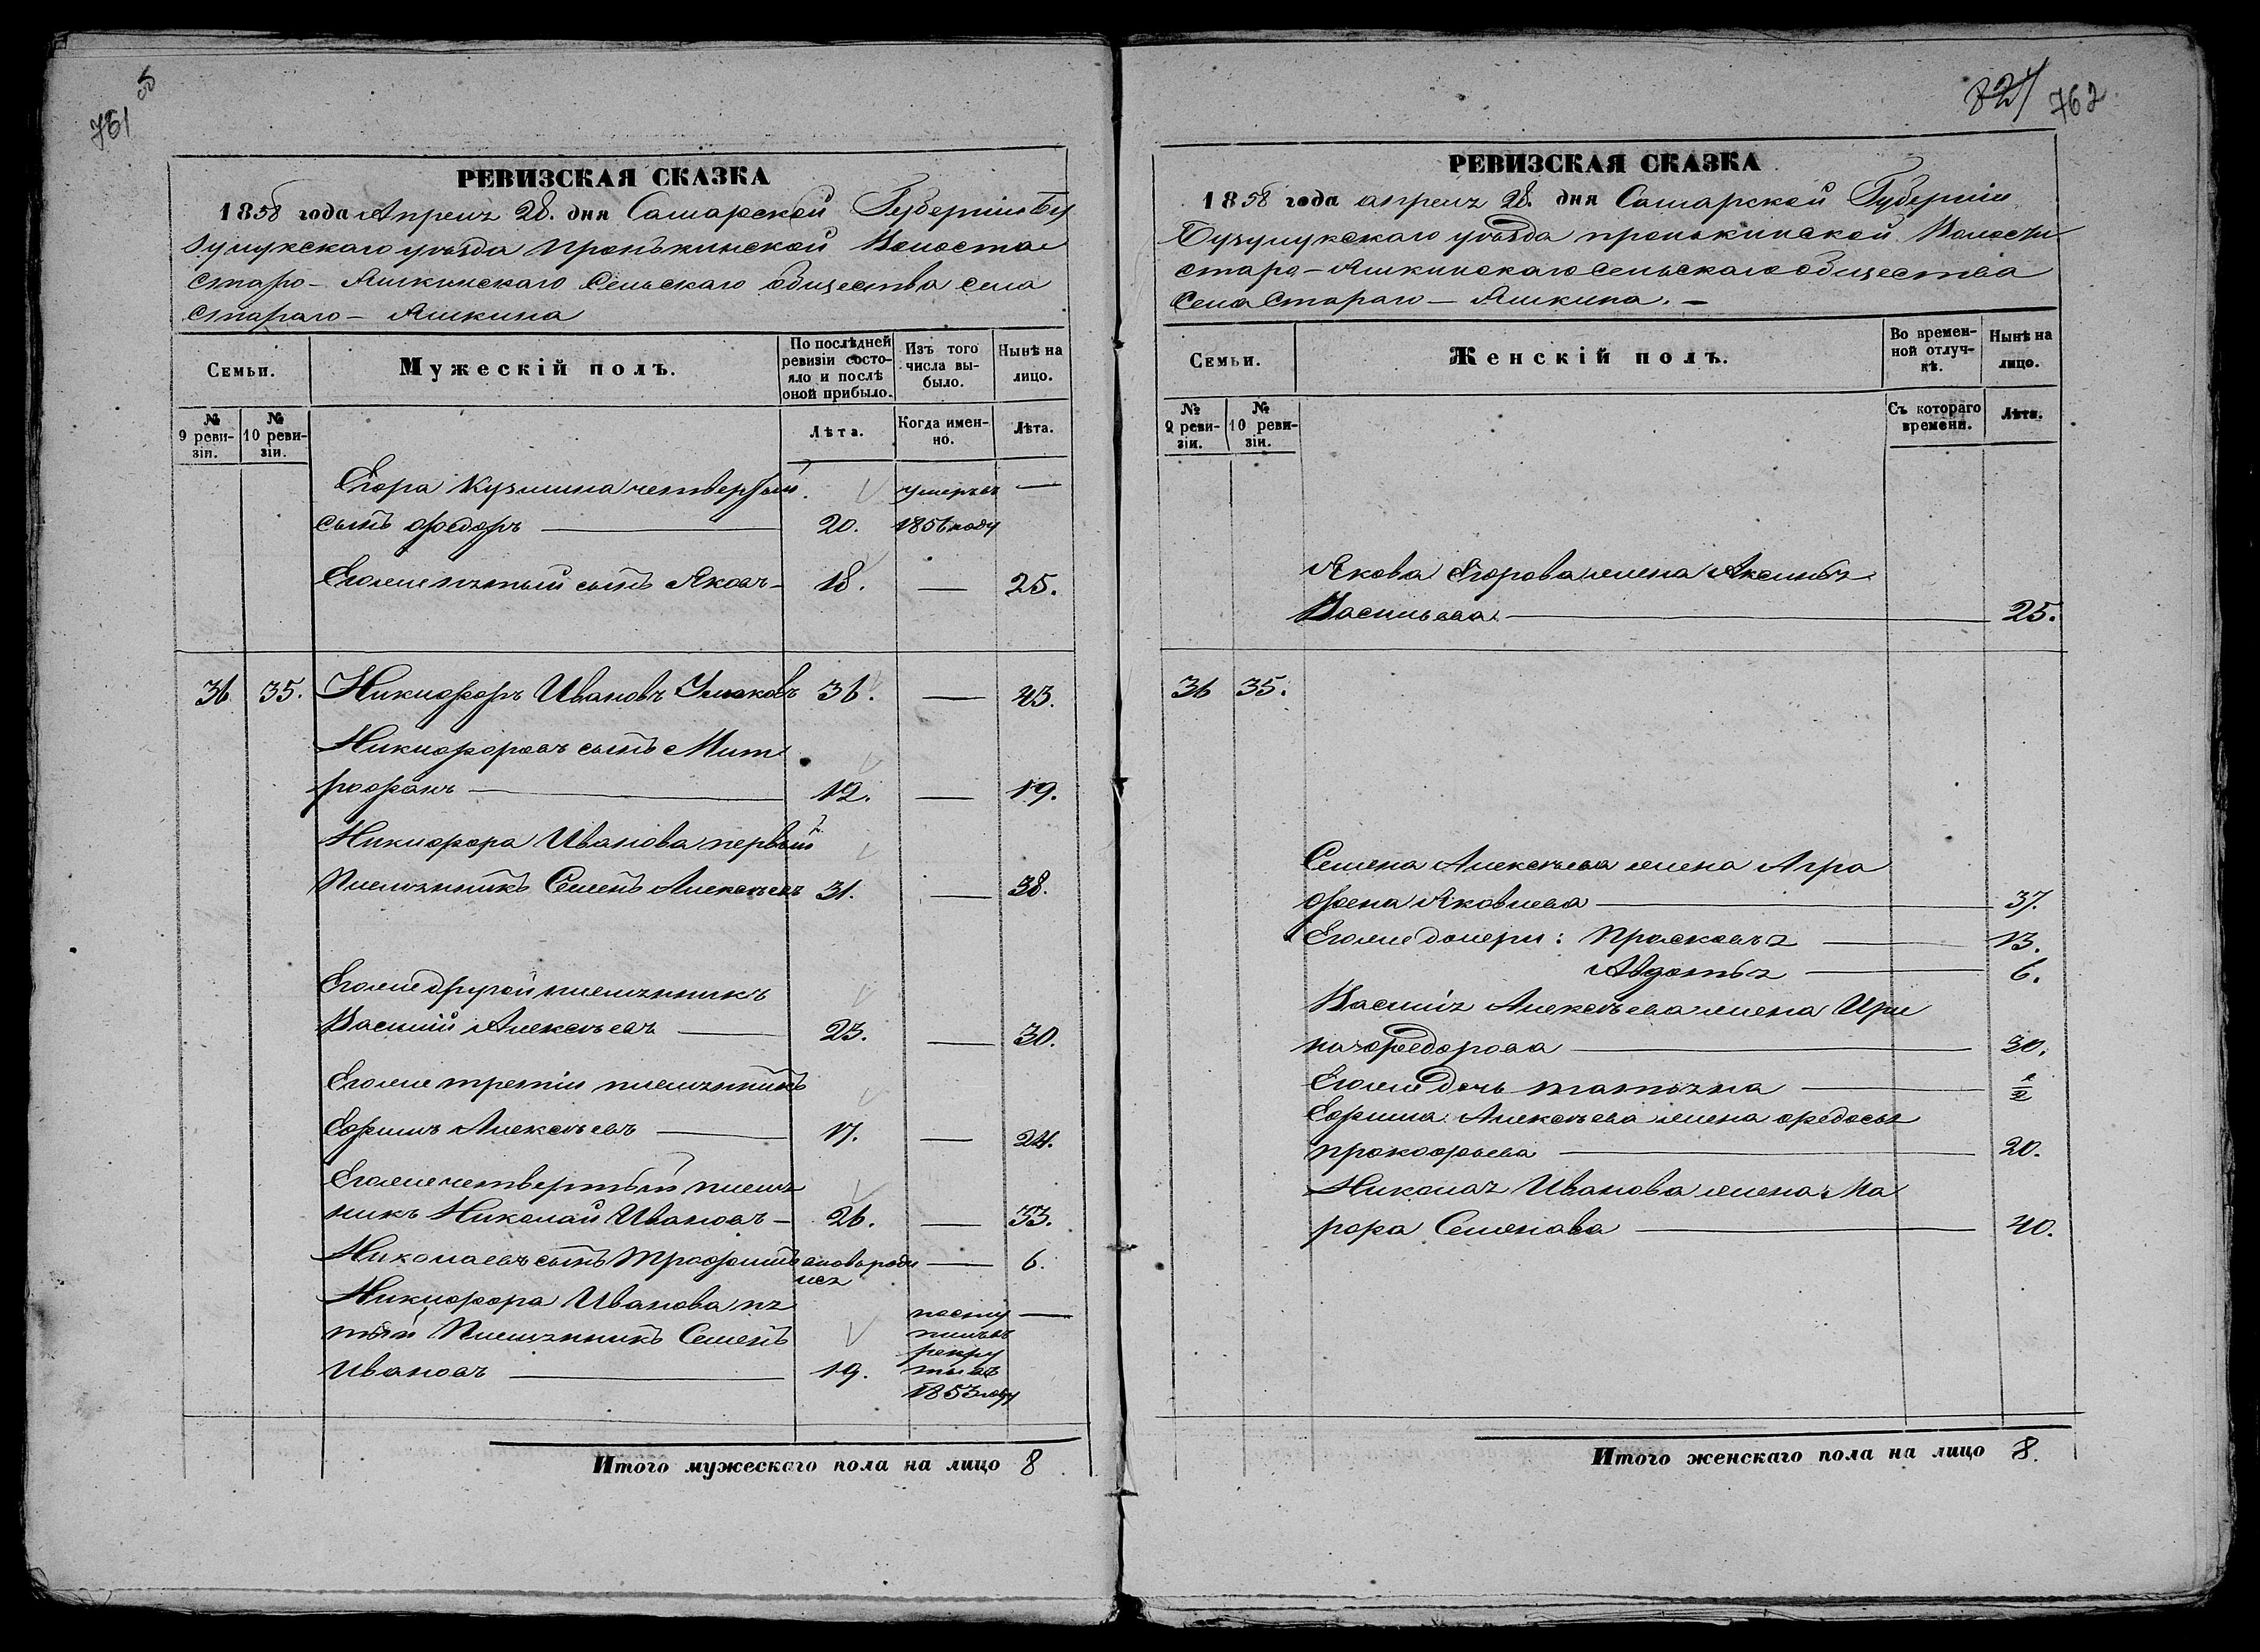 761
827 762
РЕВИЗСКАЯ СКАЗКА
1858 года Апреля 28. дня Самарской Губерніи Бу
зулукскаго уѣзда Пронькинской Волости
Старо-Яшкинскаго Сельскаго общества села
Стараго-Яшкина
Семьи.
Мужескій полъ.
По послѣдней
ревизіи состо-
яло и послѣ
оной прибыло.
Изъ того
числа вы-
было.
Нынѣ на
лицо.
№
9 реви-
зіи.
№
10 реви-
зіи.
Лѣта.
Когда имен-
но.
Лѣта.
Егора Кузмина четвертый умеръ въ —
сынъ Федоръ — 20. 1856 году
Егоже пятый сынъ Яковъ — 18. — 25.
36 35. Никифоръ Ивановъ Ушаковъ 36. — 43.
Никифоровъ сынъ Мит
рофанъ — 12. — 19.
Никифора Иванова первый
Племянникъ Семенъ Алексѣевъ 31. — 38.
Егоже другой племянникъ
Василій Алексѣевъ — 23. — 30.
Егоже третій племянникъ
Ефимъ Алексѣевъ — 17. — 24.
Егоже четвертый племя
никъ Николай Ивановъ — 26. — 33.
Николаевъ сынъ Трофимъ вновь роди — 6.
лся
Никифора Иванова пя
тый Племянникъ Семенъ
Ивановъ — 19.
посту —
пилъ въ
рекру
ты въ
1853 году
Итого мужескаго пола на лицо 8
РЕВИЗСКАЯ СКАЗКА
1858 года апреля 28. дня Самарской Губерніи
Бузулукскаго уѣзда пронькинской Волости
старо-Яшкинскаго сельскаго общества
Села Стараго-Яшкина. —
Семьи.
Женскій полъ.
Во времен-
ной отлуч-
кѣ.
Нынѣ на
лицо.
№
9 реви-
зіи.
№
10 реви-
зіи.
Съ котораго
времени.
Лѣта.
Якова Егорова жена Аксинья
Васильева — 25.
36 35.
Семена Алексѣева жена Агра
фена Яковлева — 37.
Егоже дочери: Прасковья — 13.
Авдотья — 6.
Василія Алексѣева жена Ири
на Федорова — 30.
Егоже дочь татьяна —
Ефима Алексѣева жена федосья
прокофьева — 20.
Николая Иванова жена Ма
рфа Семенова — 40.
Итого женскаго пола на лицо 8.